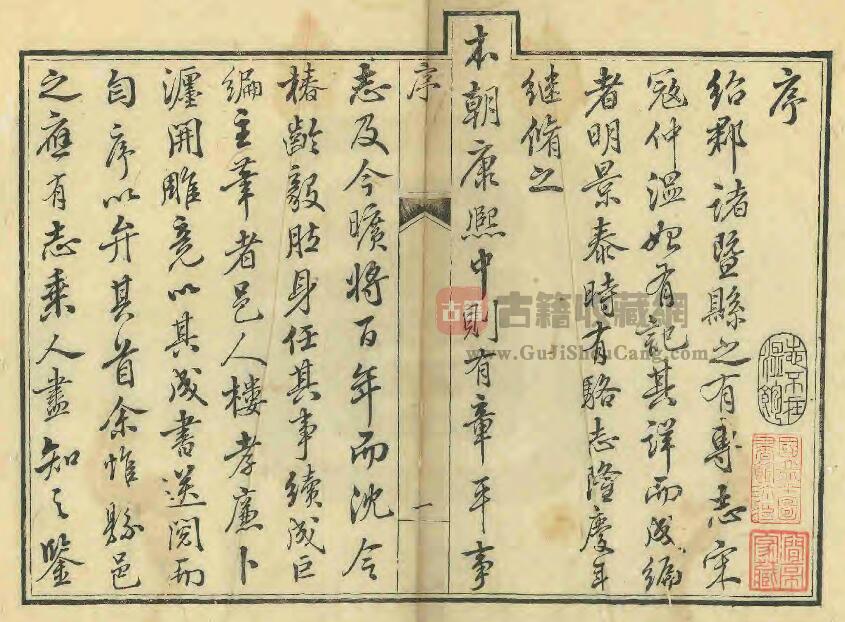 序
紹郡諸暨縣之有專志宋
寇仲溫始有記其詳而成編
者明景泰時有駱志隆慶年
继脩之
本朝康熙中則有章平事
序
一
志及今曠將百年而沈令
椿齡毅肰身任其事續成巨
編主筆者邑人樓孝廉卜
瀍開雕竟以其成書送閱而
匄序以弁其首余惟縣邑
之應有志乘人盡知之鑒
志不在溫飽
古籍
古籍收藏網
www.GuJiShouCang.com